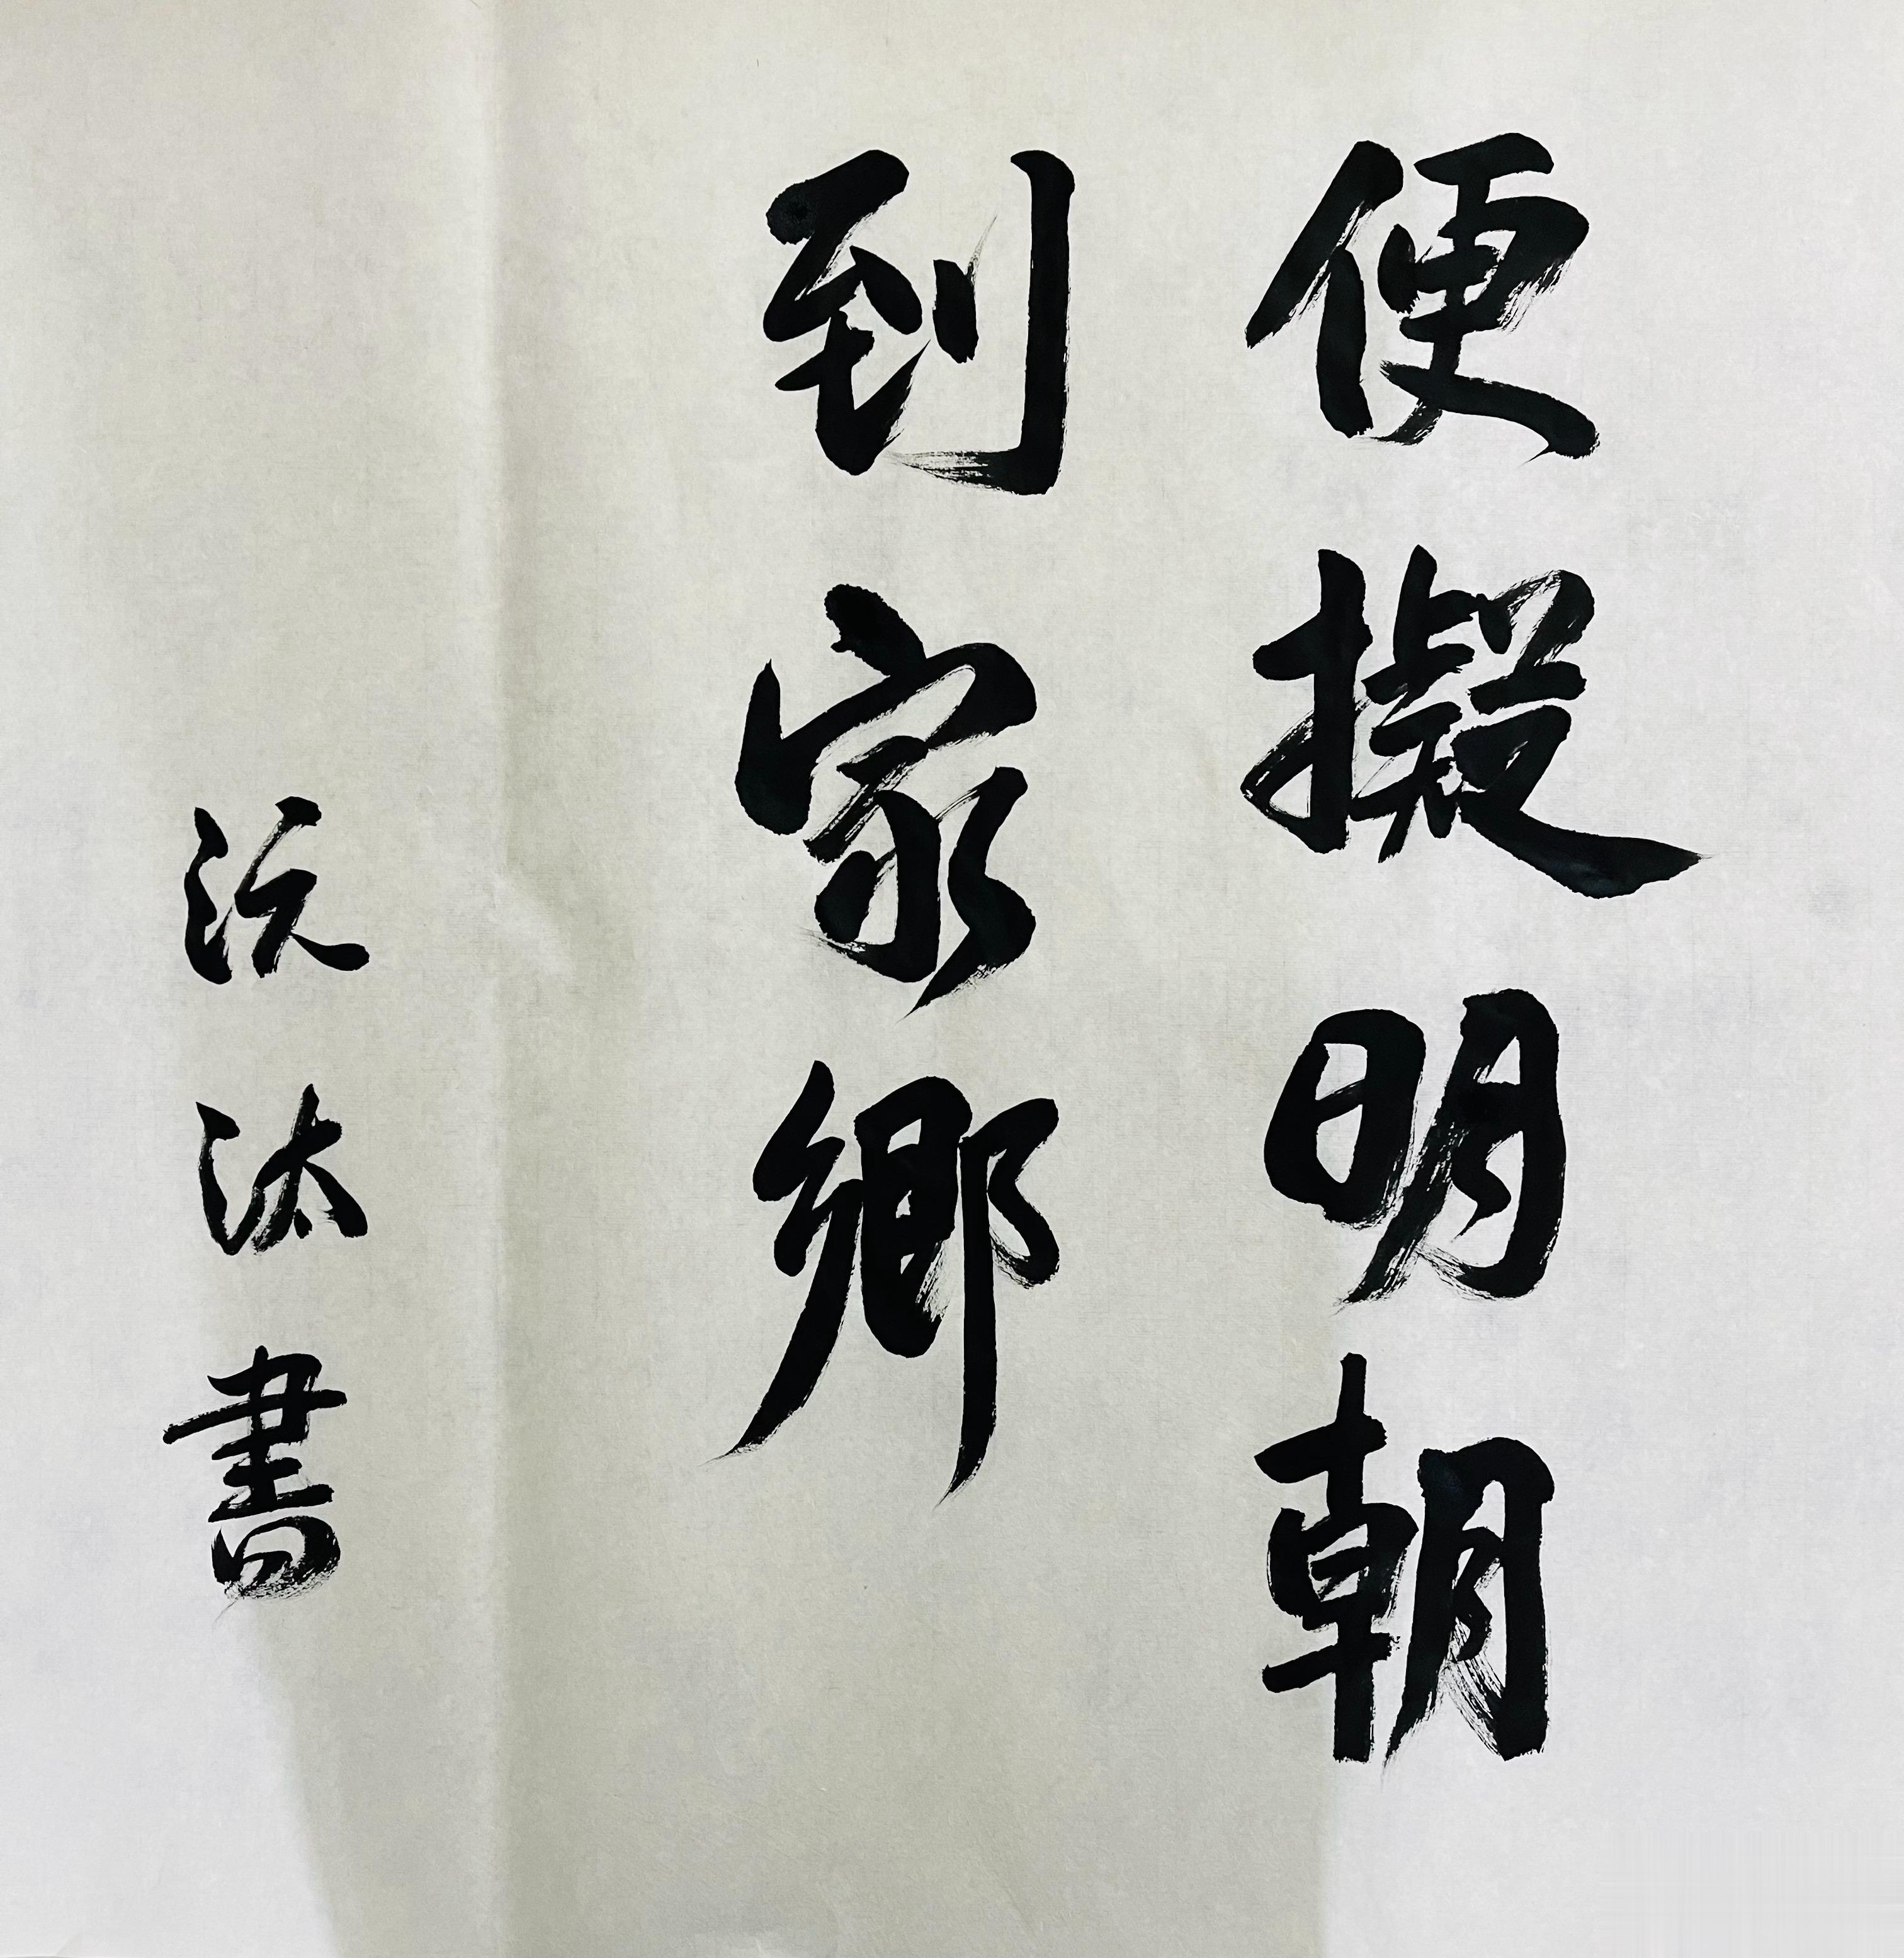 便擬明朝
到家鄉
沅汰書